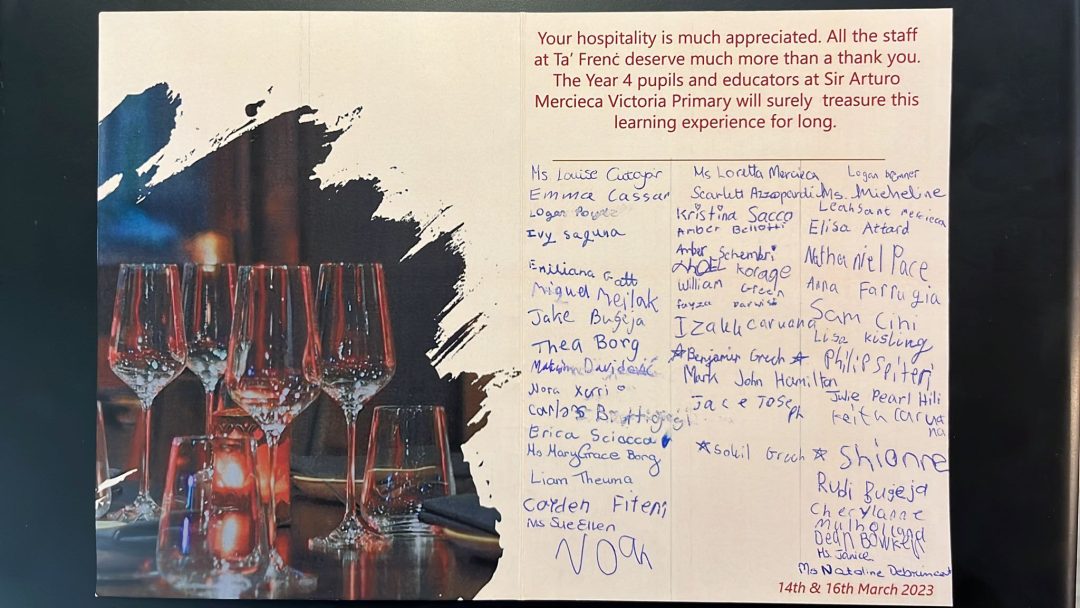 Your hospitality is much appreciated. All the staff
at Ta' Frenċ deserve much more than a thank you.
The Year 4 pupils and educators at Sir Arturo
Mercieca Victoria Primary will surely treasure this
learning experience for long.
Ms Louise
Emma Cassar
Logan
Ivy saguna
Emiliana Gatt
Miguel Mejlak
Jake Bugeja
Thea Borg
Nora Xerri
Carlos
Erica Sciacca
Ms MaryGrace Borg
Liam Theuma
Cayden Fiteni
Ms SueEllen
Noah
Ms Loretta Mercieca
Scarlett Azzopardi
Kristina Sacco
Amber Bellotti
Amber Schembri
William Green
fayza darwish
Izakk caruana
Benjamin Grech
Mark John Hamilton
Jace Jose
ph
Grech
Logan
Ms. Micheline
Leahsant mercieca
Elisa Attard
Nathaniel Pace
Anna Farrugia
Sam Cini
Lisa Kisling
Philip Spiteri
Julie Pearl Hili
keita carua
na
Shionne
Rudi Bugeja
Cherylanne
Mulholland
Dean Bowker
Ms. Janice
Ms Nataline Debrincat
14th & 16th March 2023